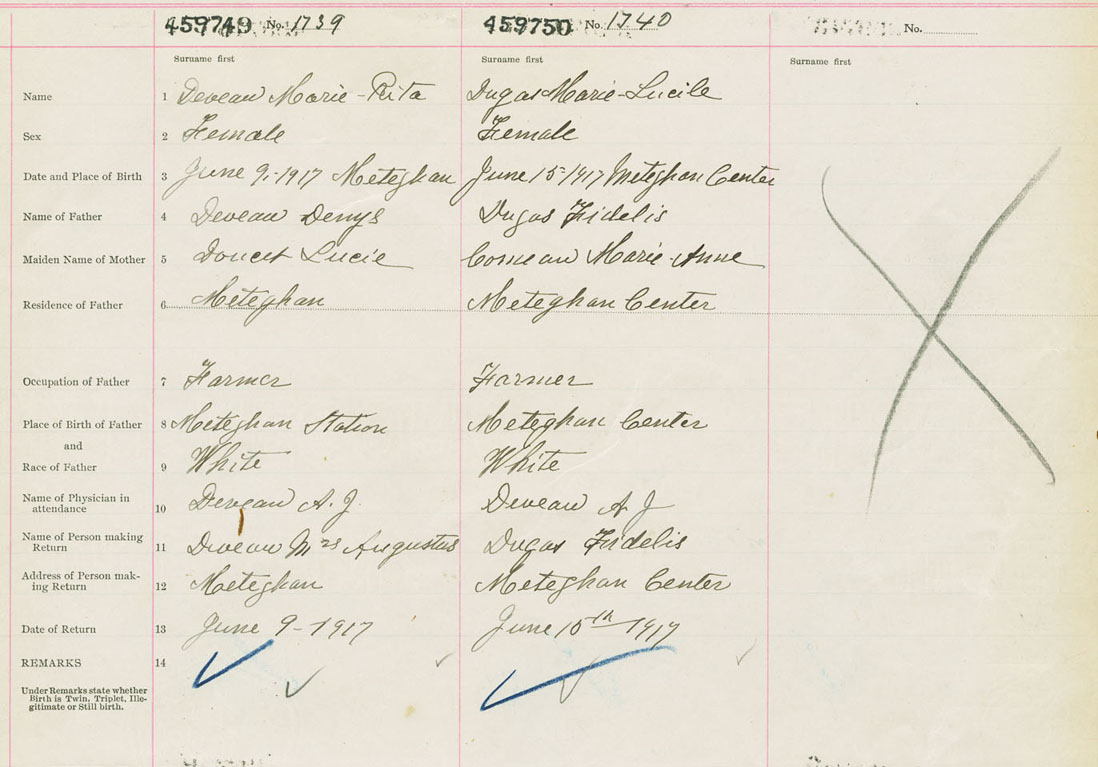 459749 No. 1739 459750 No. 1740 No.
Surname first Surname first Surname first
Name 1 Deveau Marie-Rita Dugas Marie-Lucile
Sex 2 Female Female
Date and Place of Birth 3 June 9-1917 Meteghan June 15-1917 Meteghan Center
Name of Father 4 Deveau Denys Dugas Fidelis
Maiden Name of Mother 5 Doucet Lucie Comeau Marie-Anne
Residence of Father 6 Meteghan Meteghan Center
Occupation of Father 7 Farmer Farmer
Place of Birth of Father 8 Meteghan Station Meteghan Center
and
Race of Father 9 White White
Name of Physician in
attendance 10 Deveau A. J. Deveau A J
Name of Person making
Return 11 Deveau Mrs Augustus Dugas Fidelis
Address of Person mak-
ing Return 12 Meteghan Meteghan Center
Date of Return 13 June 9-1917 June 15th-1917
REMARKS 14
Under Remarks state whether
Birth is Twin, Triplet, Ille-
gitimate or Still birth.